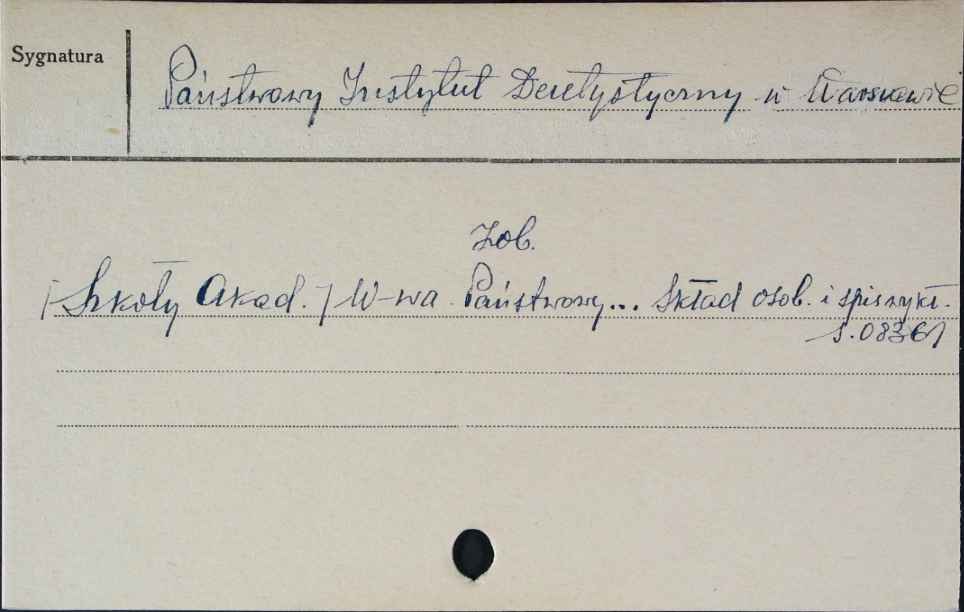 Sygnatura
Państwowy Instytut Dentystyczny w Warszawie
Zob.
[Szkoły Akad.] W-wa. Państwowy... Skład osob. i spis wykł.
S. 08361